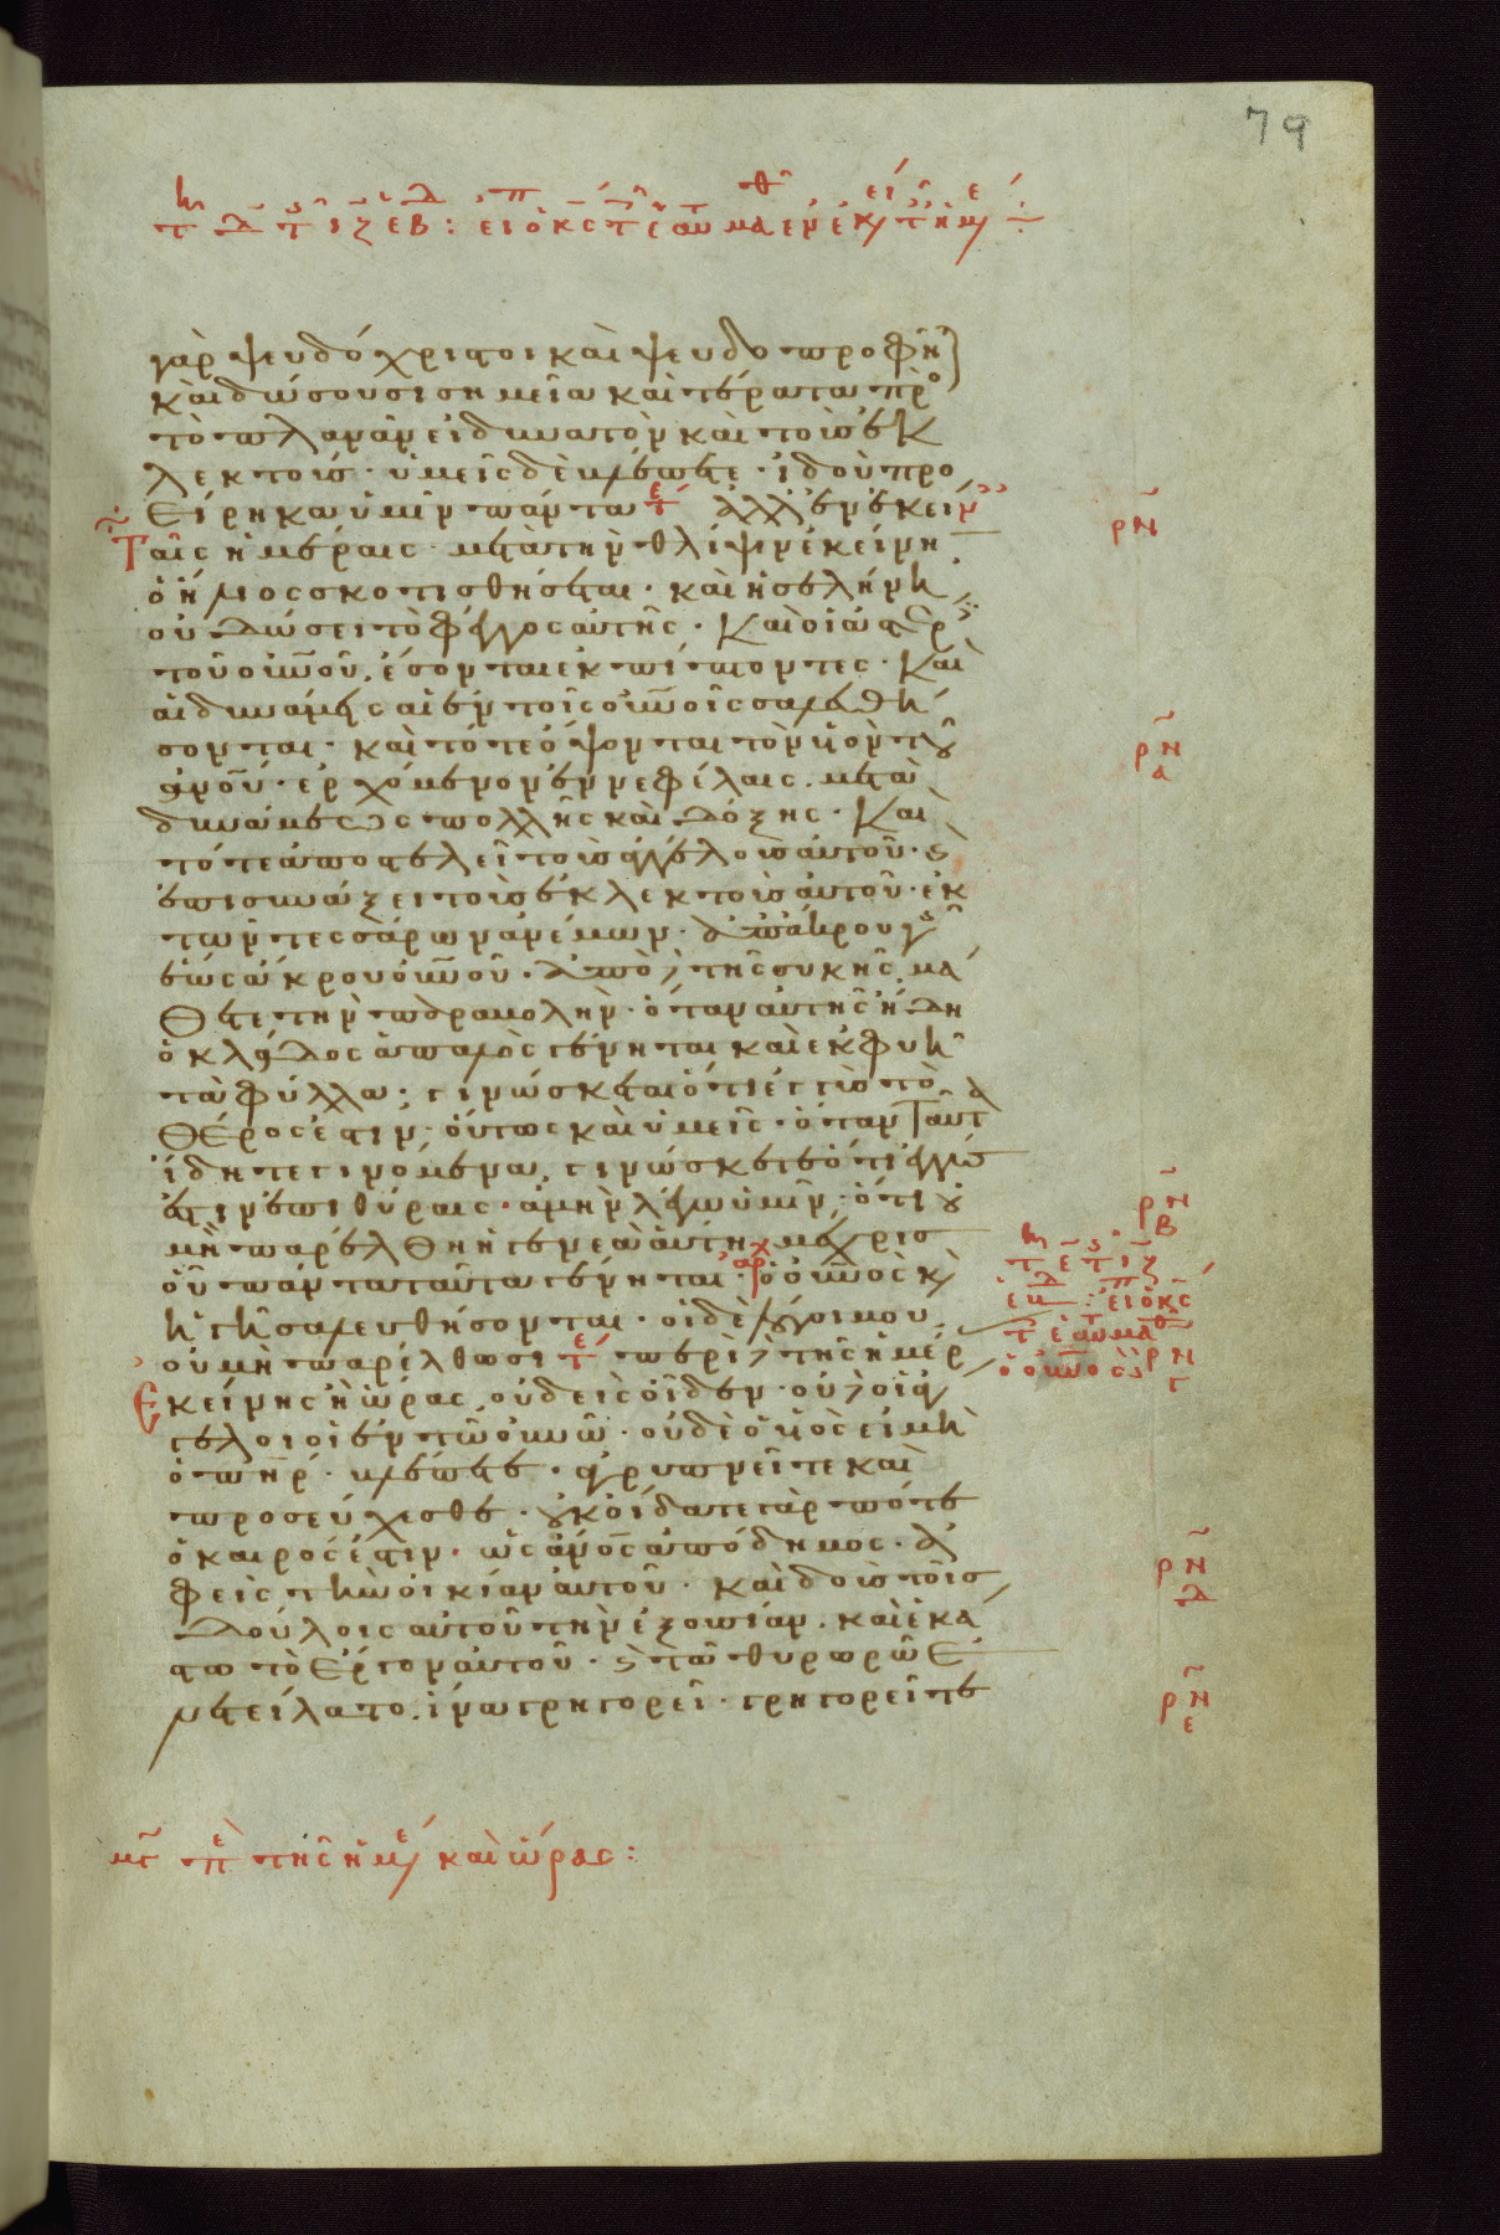 79
γὰρ ψευδόχριστοι καὶ ψευδοπροφῆ
καὶ δώσουσι σημεῖα καὶ τέρατα πρὸ
τὸ πλανᾶν εἰ δυνατὸν καὶ τοὺς ἐκ
λεκτούς · ὑμεῖς δὲ βλέπετε · ἰδοὺ προ
είρηκα ὑμῖν πάντα τε ἀλλ' ἐν ἐκείν
Ταῖς ἡμέραις · μετὰ τὴν θλίψιν ἐκείνη
ὁ ἥλιος σκοτισθήσεται · καὶ ἡ σελήνη
οὐ δώσει τὸ φέγγος αὐτῆς · Καὶ οἱ ἀστέρ
τοῦ οὐνοῦ, ἔσονται ἐκπίπτοντες · Καὶ
αἱ δυνάμεις αἱ ἐν τοῖς οὐνοῖς σαλευθή
σονται · καὶ τότε ὄψονται τὸν ὑὸν τοῦ
ἀνοῦ · ἐρχόμενον ἐν νεφέλαις · μετὰ
δυνάμεως πολλῆς καὶ δόξης · Καὶ
τότε ἀποστελεῖ τοὺς ἀγγέλους αὐτοῦ · ϛ
ἐπισυνάξει τοὺς ἐκλεκτοὺς αὐτοῦ · ἐκ
τῶν τεσσάρων ἀνέμων · ἀπ' ἄκρου γῆς
ἕως ἄκρου οὐνοῦ · Ἀπὸ δὲ τῆς συκῆς μά
θετε τὴν παραβολήν · ὅταν αὐτῆς ἤδη
ὁ κλάδος ἁπαλὸς γένηται καὶ ἐκφυῆ
τὰ φύλλα · γινώσκεται ὅτι ἐγγὺς τὸ
θέρος ἐστιν · οὕτως καὶ ὑμεῖς · ὅταν ταῦτα
ἴδητε γινόμενα, γινώσκετε ὅτι ἐγγύς
ἐστιν ἐπι θύραις · ἀμὴν λέγω ὑμῖν · ὅτι οὐ
μὴ παρέλθη ἡ γενεὰ αὕτη μέχρις
οὗ πάντα ταῦτα γένηται · ὁ οὐνὸς κ
ἡ γῆ σαλευθήσονται · οἱ δὲ λόγοι μου
οὐ μὴ παρέλθωσι τε περὶ δὲ τῆς ἡμέρ
Ἐκείνης ἢ ὥρας, οὐδεὶς οἶδεν · οὐδὲ οἱ ἄγ
γελοι οἱ ἐν τῶ οὐνῶ · οὐδὲ ὁ ὑὸς εἰ μὴ
ὁ πηρ · βλέπετε · ἀγρυπνεῖτε καὶ
προσεύχεσθε · οὐκ οἴδατε γὰρ πότε
ὁ καιρός ἐστιν · ὡς ἀνος ἀπόδημος · ἀ
φεὶς τὴν οἰκίαν αὐτοῦ · καὶ δοὺς τοῖς
δούλοις αὐτοῦ τὴν ἐξουσίαν · καὶ ἑκά
στω τὸ ἔργον αὐτοῦ · ϛ τῶ θυρωρῶ ἐ
νετείλατο, ἵνα γρηγορεῖ · γρηγορεῖτε
ρν
ρν
α
ρν
β
ρν
γ
ρν
δ
ρν
ε
μγ πε τῆς ἡμε καὶ ὥρας :